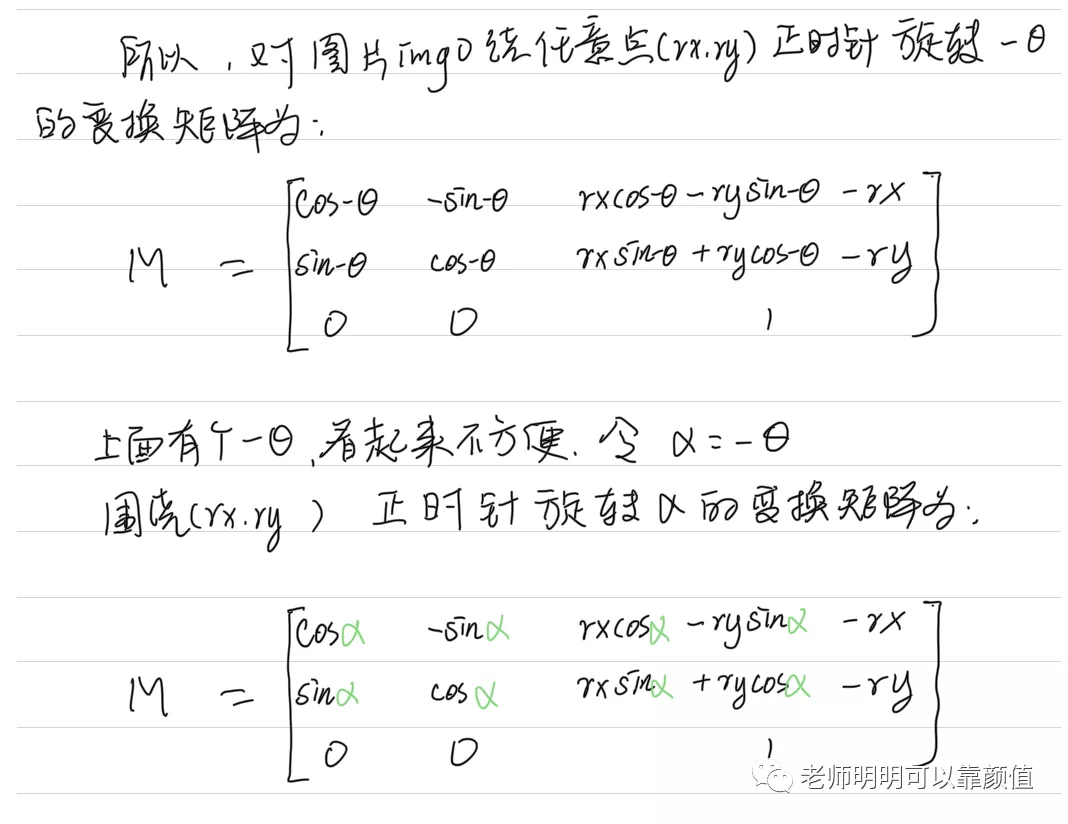 所以，对图片img0绕任意点(rx.ry)正时针旋转-θ
的变换矩阵为：
cos-θ -sin-θ rxcos-θ-rysin-θ-rx
M = sin-θ cos-θ rxsin-θ+rycos-θ-ry
0 0 1
上面有个-θ，看起来不方便. 令 α=-θ
围绕(rx.ry) 正时针旋转α的变换矩阵为：
cosα -sinα rxcosα-rysinα-rx
M = sinα cosα rxsinα+rycosα-ry
0 0 1
老师明明可以靠颜值